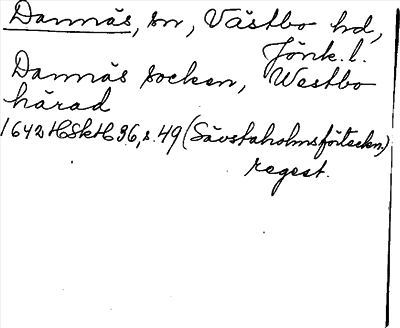 Dannäs, sn, Västbo hd,
Jönk. l.
Dannäs socken, Westbo
härad
1642 HSkH 36, s. 49 (Sävstaholmsförteckn.)
regest.